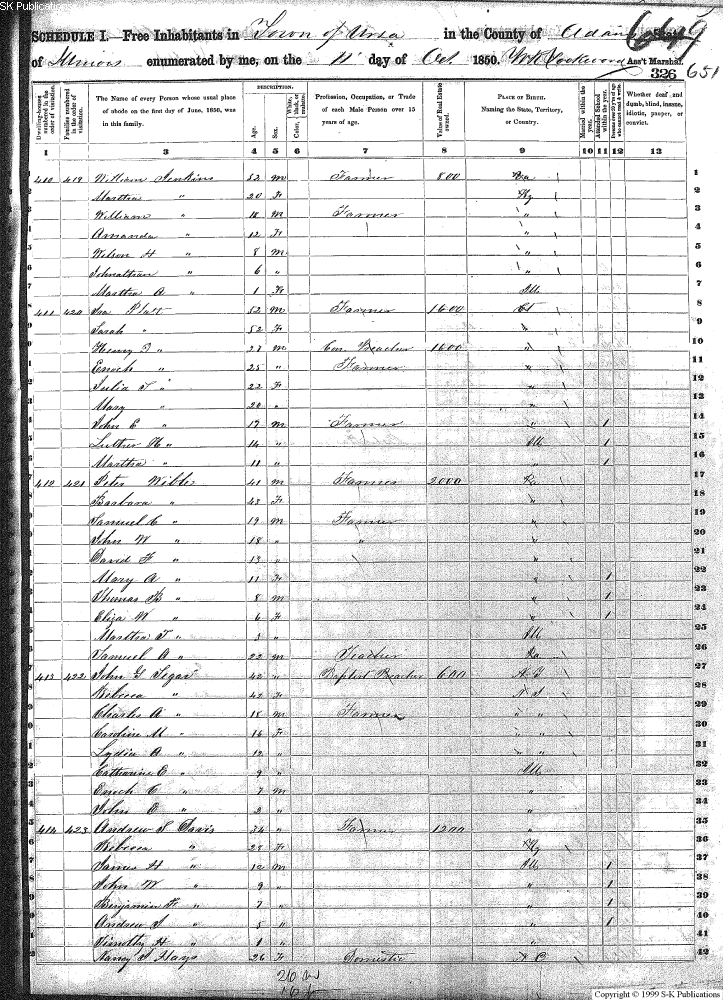 SK Publications
6619
651
SCHEDULE I.—Free Inhabitants in Town of Ursa in the County of Adams State
of Illinois enumerated by me, on the 11" day of Oct. 1850. Ass't Marshal.
326
Dwelling-houses numbered in the order of visitation.
Families numbered in the order of visitation.
The Name of every Person whose usual place of abode on the first day of June, 1850, was in this family.
DESCRIPTION.
Age.
Sex.
White, black, or mulatto.
Color,
Profession, Occupation, or Trade of each Male Person over 15 years of age.
Value of Real Estate owned.
PLACE OF BIRTH. Naming the State, Territory, or Country.
Married within the year.
Attended School within the year.
Persons over 20 y'rs of age who cannot read & write.
Whether deaf and dumb, blind, insane, idiotic, pauper, or convict.
1 2 3 4 5 6 7 8 9 10 11 12 13
410 419 William Jenkins 52 m Farmer 800 1
Martha " 20 F Ky 2
William " 18 m Farmer " 3
Amanda " 12 F " 4
Wilson H " 8 m " 5
Johnathan " 6 " " 6
Martha A " 1 F Ill 7
411 420 Ira Platt 52 m Farmer 1600 Ct 8
Sarah " 52 F " 9
Henry " 27 m Con Preacher 1600 " 10
Enoch " 25 " Farmer " 11
Julia " 22 F " 12
Mary " 20 " " 13
John E " 17 m Farmer " 1 14
Luther H " 14 " Ill 1 15
Martha " 11 " " 1 16
412 421 Peter 41 m Farmer 2000 17
Barbara " 43 F " 18
Samuel C " 19 m Farmer " 19
John W " 18 " " " 20
David F " 13 " " 21
Mary A " 11 F " 1 22
Thomas B " 8 m " 1 23
Eliza W " 6 F " 1 24
Martha " 3 " Ill 25
Samuel A " 22 m Teacher 26
413 422 John G 42 " Baptist Preacher 600 27
Rebecca " 42 F 28
Charles A " 18 m Farmer " " 29
Caroline M " 16 F " " 30
Lydia A " 12 " " " 31
Catharine E " 9 " Ill 32
Enoch C " 7 m " 33
John " 2 " " 34
414 423 Andrew S Davis 34 " Farmer 1200 " 35
Rebecca " 28 F Ky 36
James H " 12 m Ill 1 37
John W " 9 " " 1 38
Benjamin F " 7 " " 1 39
Andrew S " 5 " " 1 40
Timothy H " 1 " " 41
Nancy Hays 26 F Domestic N C 42
Copyright © 1999 S-K Publications